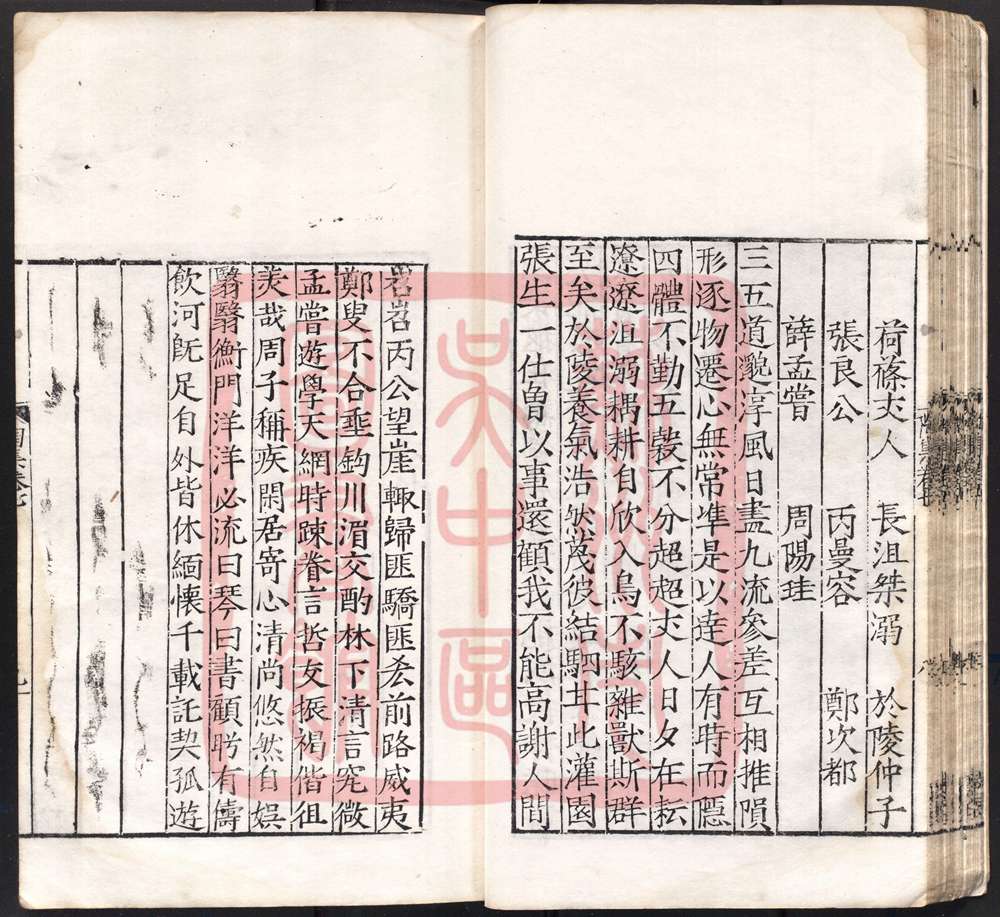 荷蓧丈人 長沮桀溺 於陵仲子
張良公 丙曼容 鄭次都
薛孟嘗 周陽珪
三五道邈淳風日盡九流參差互相推隕
形逐物遷心無常凖是以達人有時而隱
四體不勤五榖不分超超丈人日夕在耘
遼遼沮溺耦耕自欣入鳥不駭雜獸斯群
至矣於陵養氣浩然蔑彼結駟甘此灌園
張生一仕曽以事還顧我不能高謝人間
岧岧丙公望崖輙歸匪驕匪𠫤前路威夷
鄭叟不合垂釣川湄交酌林下清言究微
孟嘗遊學天網時踈眷言哲友振褐偕徂
美哉周子稱疾閑居寄心清尚悠然自娯
翳翳衡門洋洋必流曰琴曰書顧盻有儔
飲河旣足自外皆休緬懷千載託契孤遊
陶集卷七
九